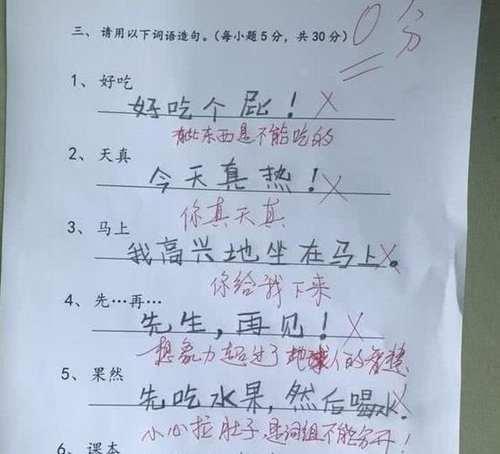 三、请用以下词语造句。(每小题5分,共30分)
0分
1、好吃
好吃个屁!
有些东西是不能吃的
2、天真
今天真热!
你真天真
3、马上
我高兴地坐在马上。
你给我下来
4、先…再…
先生,再见!
想象力超过了地球人的智慧
5、果然
先吃水果,然后喝水.
小心拉肚子,是词组不能分开!
6、课本